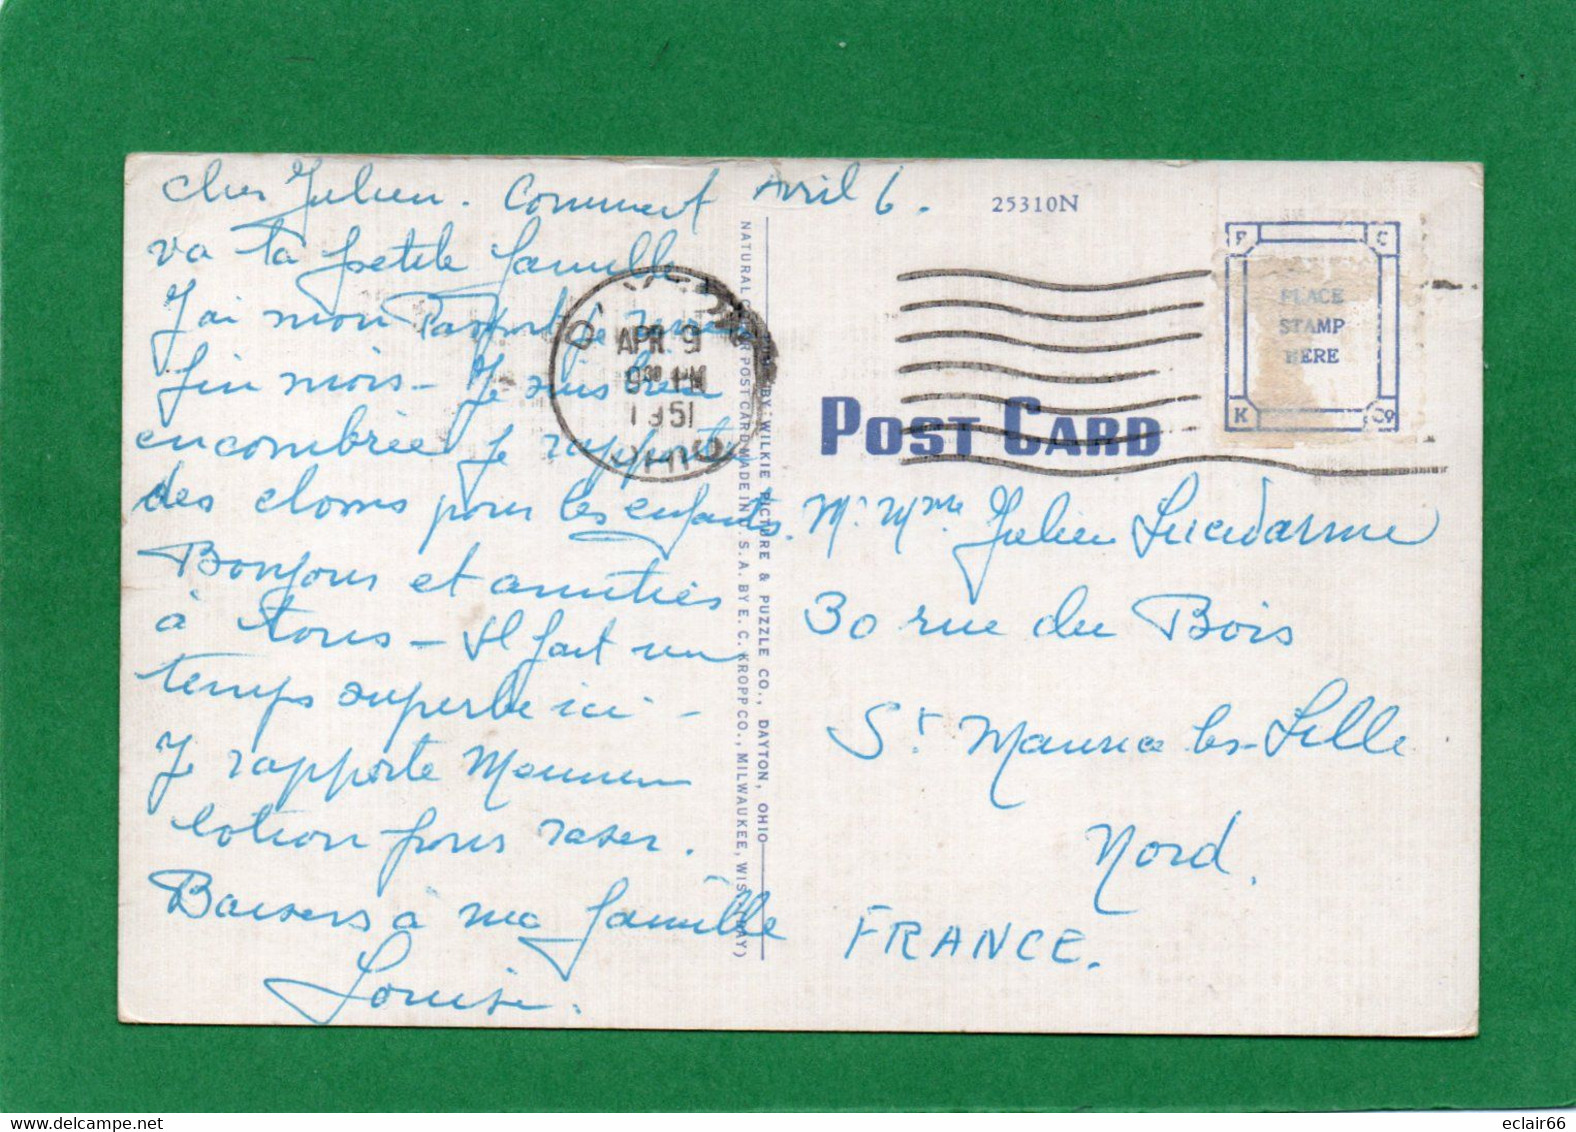 Cher Julien. Comment Avril 6.
va ta petite famille
J'ai mon Passport je reviens
fin mois - Je suis bien
encombrée je rapporte
des cloms pour les enfants.
Bonjour et amitiés
à tous - Il fait un
temps superbe ici -
Je rapporte Mennen
lotion pour raser.
Baisers à ma famille
Louise.
25310N
P C
PLACE
STAMP
HERE
K Co
APR 9
PM
1951
OHIO
POST CARD
BY WILKIE PICTURE & PUZZLE CO., DAYTON, OHIO
NATURAL COLOR POST CARD MADE IN U.S.A. BY E. C. KROPP CO., MILWAUKEE, WIS.
Mr Mme Julien Lucidarme
30 rue du Bois
St Maurice les-Lille
Nord.
FRANCE.
eclair66